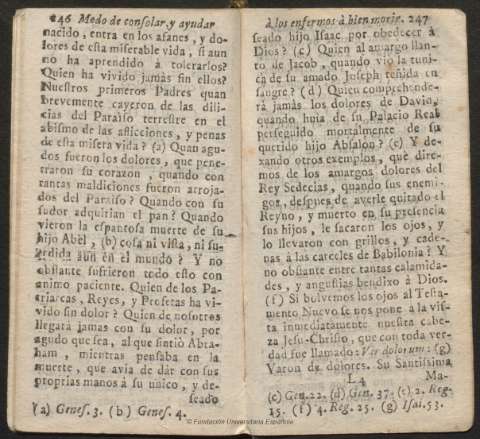 246 Modo de consolar, y ayudar
nacido, entra en los afanes, y do-
lores de esta miserable vida, si aun
no ha aprendido à tolerarlos?
Quien ha vivido jamàs sin ellos?
Nuestros primeros Padres quan
brevemente cayeron de las dili-
cias del Paraiso terrestre en el
abismo de las aflicciones, y penas
de esta misera vida? (a) Quan agu-
dos fueron los dolores, que pene-
traron su corazon, quando con
tantas maldiciones fueron arroja-
dos del Paraiso? Quando con su
sudor adquirian el pan? Quando
vieron la espantosa muerte de su
hijo Abèl, (b) cosa ni vista, ni su-
cedida aun en el mundo? Y no
obstante sufrieron todo esto con
animo paciente. Quien de los Pa-
triarcas, Reyes, y Profetas ha vi-
vido sin dolor? Quien de nosotros
llegarà jamàs con su dolor, por
agudo que sea, al que sintiò Abra-
ham, mientras pensaba en la
muerte, que avia de dàr con sus
proprias manos à su unico, y de-
seado
(a) Genes. 3. (b) Genes. 4.
à los enfermos à bien morir. 247
seado hijo Isaac por obedecer à
Dios? (c) Quien al amargo llan-
to de Jacob, quando viò la tuni-
ca de su amado Joseph teñida en
sangre? (d) Quien comprehende-
rà jamàs los dolores de David,
quando huìa de su Palacio Real
perseguido mortalmente de su
querido hijo Absalòn? (e) Y de-
xando otros exemplos, que dire-
mos de los amargos dolores del
Rey Sedecias, quando sus enemi-
gos, despues de averle quitado el
Reyno, y muerto en su presencia
sus hijos, le sacaron los ojos, y
lo llevaron con grillos, y cade-
nas à las carceles de Babilonia? Y
no obstante entre tantas calamida-
des, y angustias bendixo à Dios.
(f) Si bolvemos los ojos al Testa-
mento Nuevo se nos pone à la vis-
ta inmediatamente nuestra cabe-
za Jesu-Christo, que con toda ver-
dad fue llamado: Vir dolorum: (g)
Varon de dolores. Su Santissima
L 4 Ma-
(c) Gen. 22. (d) Gen. 37. (e) 2. Reg.
15. (f) 4. Reg. 25. (g) Isai. 53.
© Fundación Universitaria Española